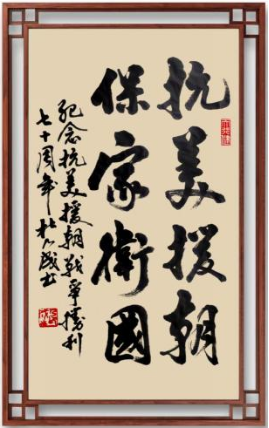 抗美援朝
保家衛國
紀念抗美援朝戰爭勝利
七十周年杜